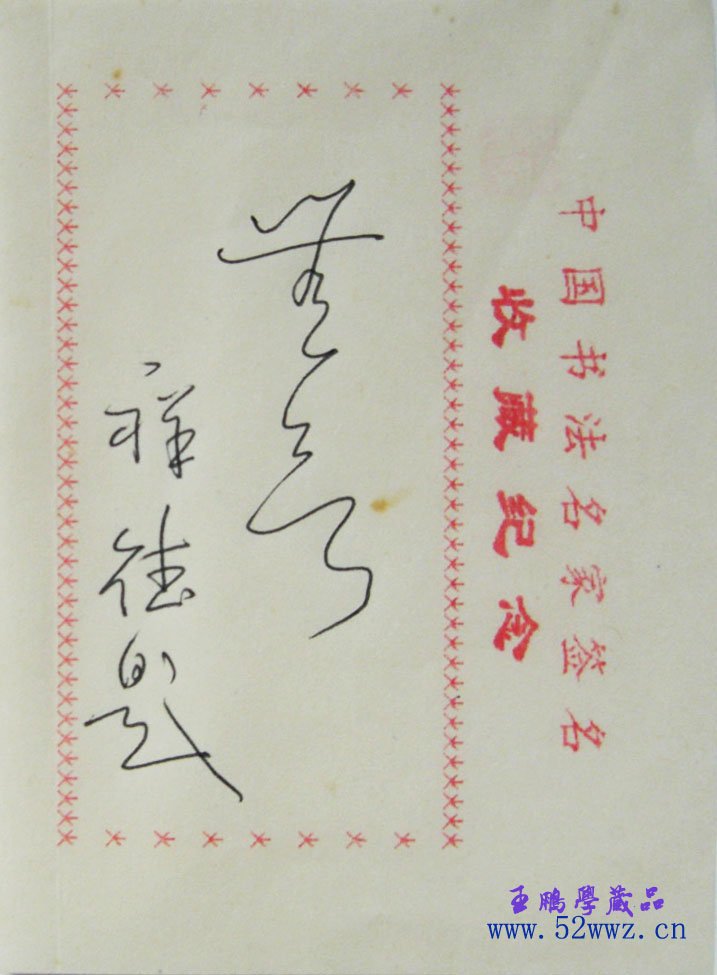 中国书法名家签名
收藏纪念
祥德题
王鹏學藏品
www.52wwz.cn